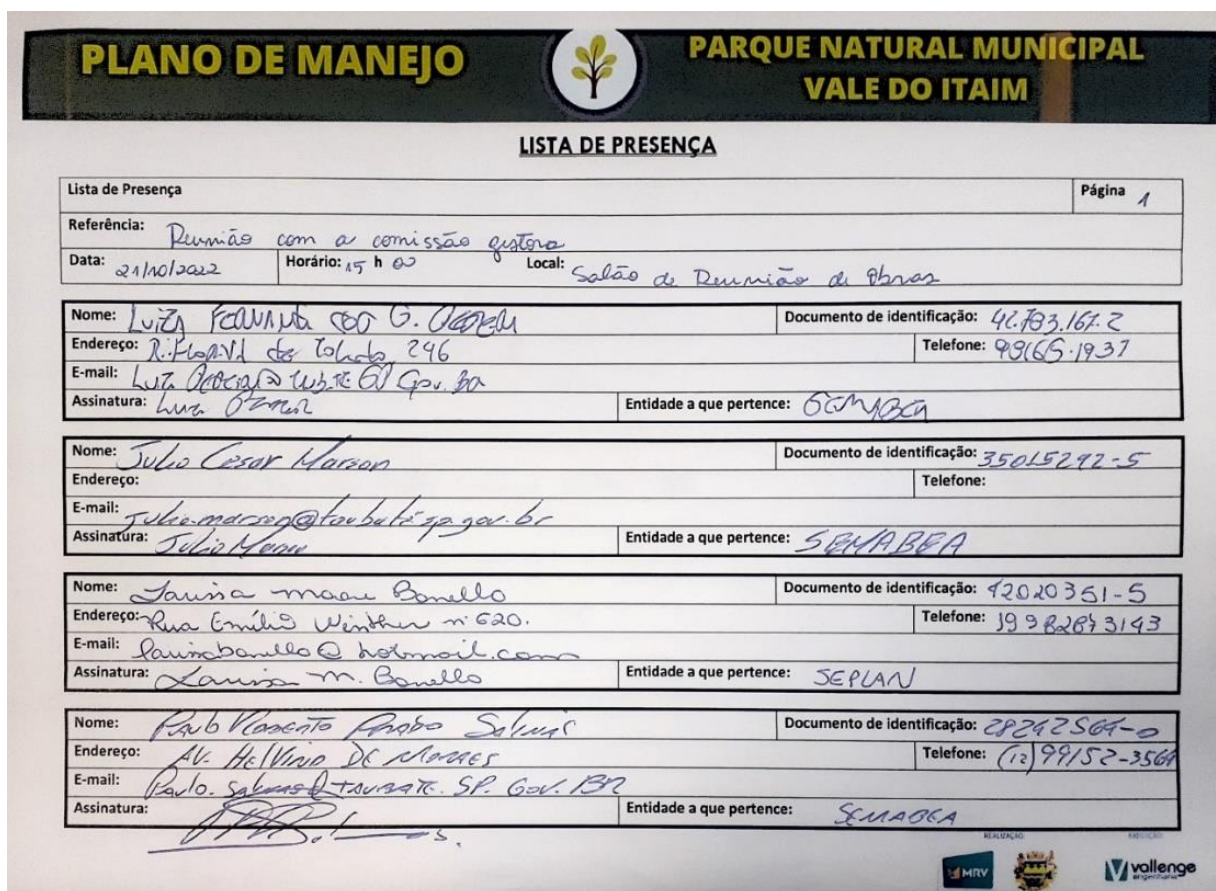 PLANO DE MANEJO
PARQUE NATURAL MUNICIPAL
VALE DO ITAIM
LISTA DE PRESENÇA
Lista de Presença Página 1
Referência: Reunião com a comissão gestora
Data: 21/10/2022 Horário: 15 h 00 Local: Salão de Reunião de Obras
Nome: Luiza G. Documento de identificação: 42.783.167.2
Endereço: 246 Telefone: 99165.1937
E-mail: Gov. Br
Assinatura: Entidade a que pertence: SEMABEA
Nome: Julio Cesar Marson Documento de identificação: 35015292-5
Endereço: Telefone:
E-mail: julio.marson@taubate.sp.gov.br
Assinatura: Julio Marson Entidade a que pertence: SEMABEA
Nome: Larissa Bonello Documento de identificação: 42020351-5
Endereço: Rua Emílio Winther nº 620. Telefone: 19982873143
E-mail: larissabonello@hotmail.com
Assinatura: Larissa M. Bonello Entidade a que pertence: SEPLAN
Nome: Paulo Roberto Salinas Documento de identificação: 28242564-0
Endereço: Av. Helvino De Moraes Telefone: (12) 99152-3564
E-mail: Paulo.Salinas@TAUBATE.SP.GOV.BR
Assinatura: Entidade a que pertence: SEMABEA
REALIZAÇÃO: EXECUÇÃO:
MRV vallenge
engenharia